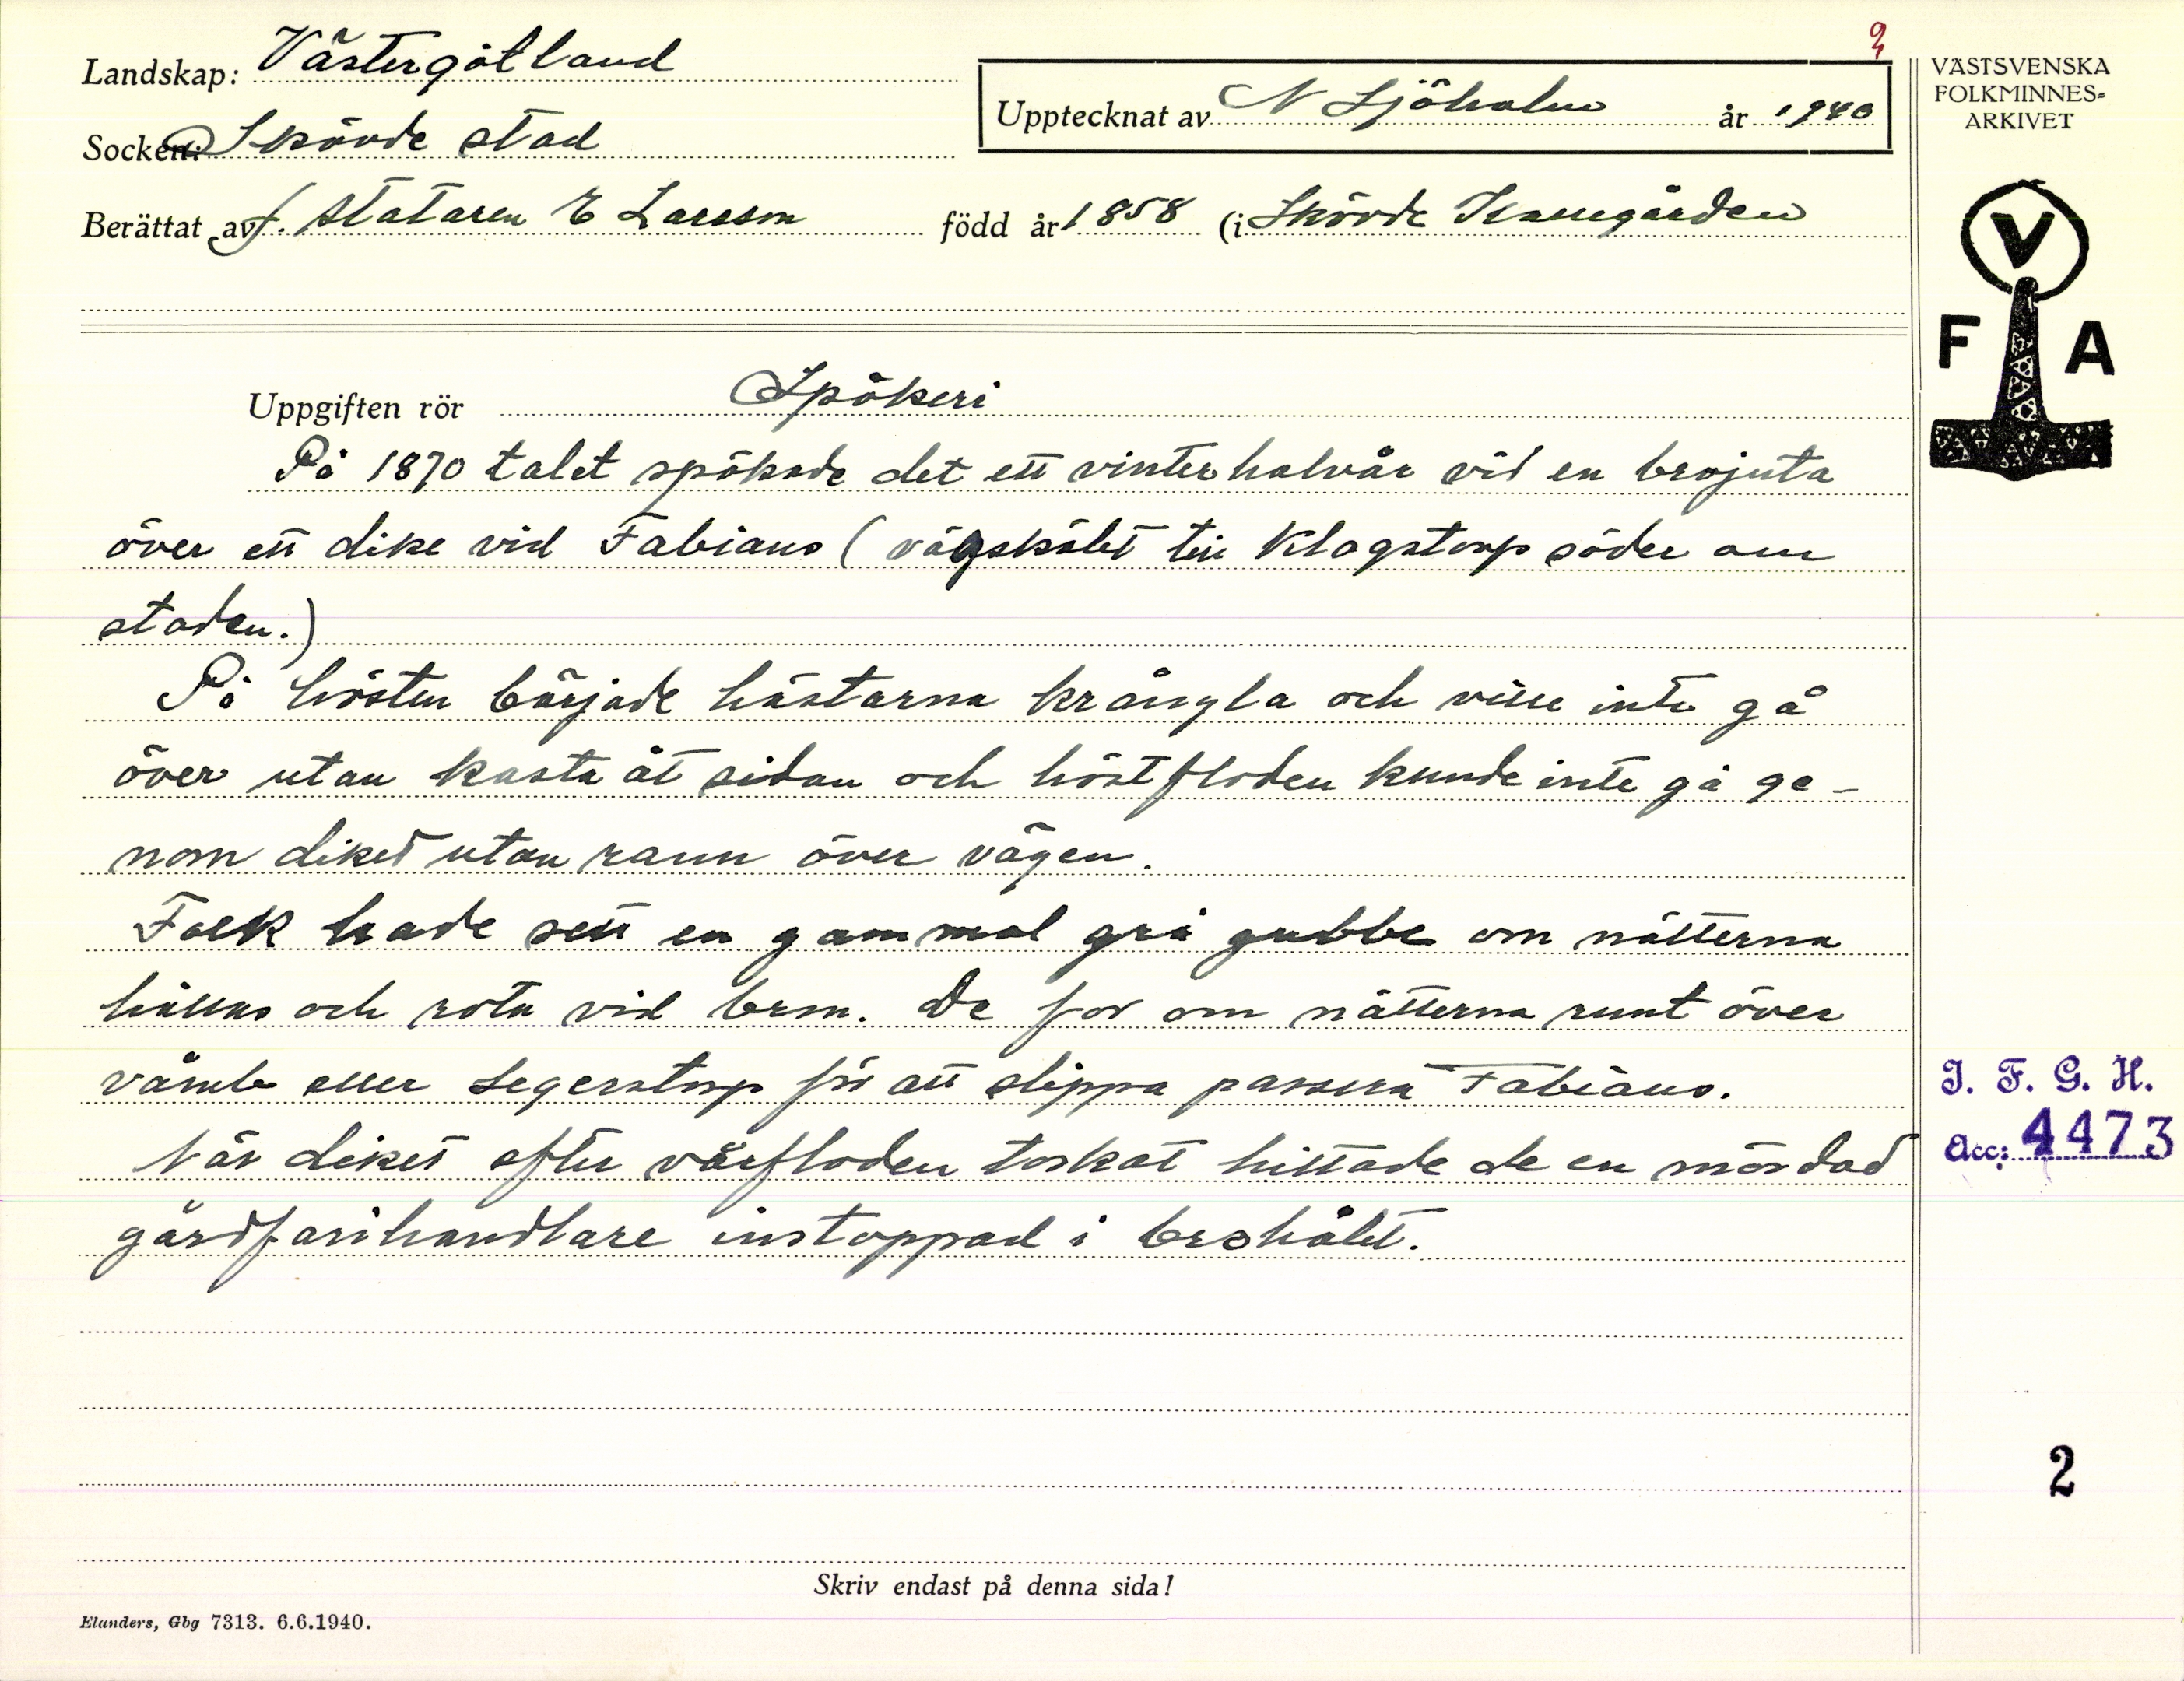 Landskap: Västergötland
Socken: Skövde stad
Berättat av f. Stataren E Larsson född år 1858 (i Skövde
Upptecknat av N Sjöholm år 1940
VÄSTSVENSKA
FOLKMINNES-
ARKIVET
V
F A
Uppgiften rör Spökeri
På 1870 talet spökade det ett vinterhalvår vid en brojuta
över ett dike vid Fabians (vägskälet till Klagstorp söder om
staden.)
På hösten började hästarna krångla och ville inte gå
över utan kasta åt sidan och höstfloden kunde inte gå ge-
nom diket utan rann över vägen.
Folk hade sett en gammal grå gubbe om nätterna
hållas och rota vid bron. De for om nätterna runt över
våmb eller Segerstorp för att slippa passera Fabians.
När diket efter vårfloden torkat hittade de en mördad
gårdfarihandlare instoppad i brohålet.
I. F. G. H.
Acc: 4473
2
Skriv endast på denna sida!
Elanders, Gbg 7313. 6.6.1940.